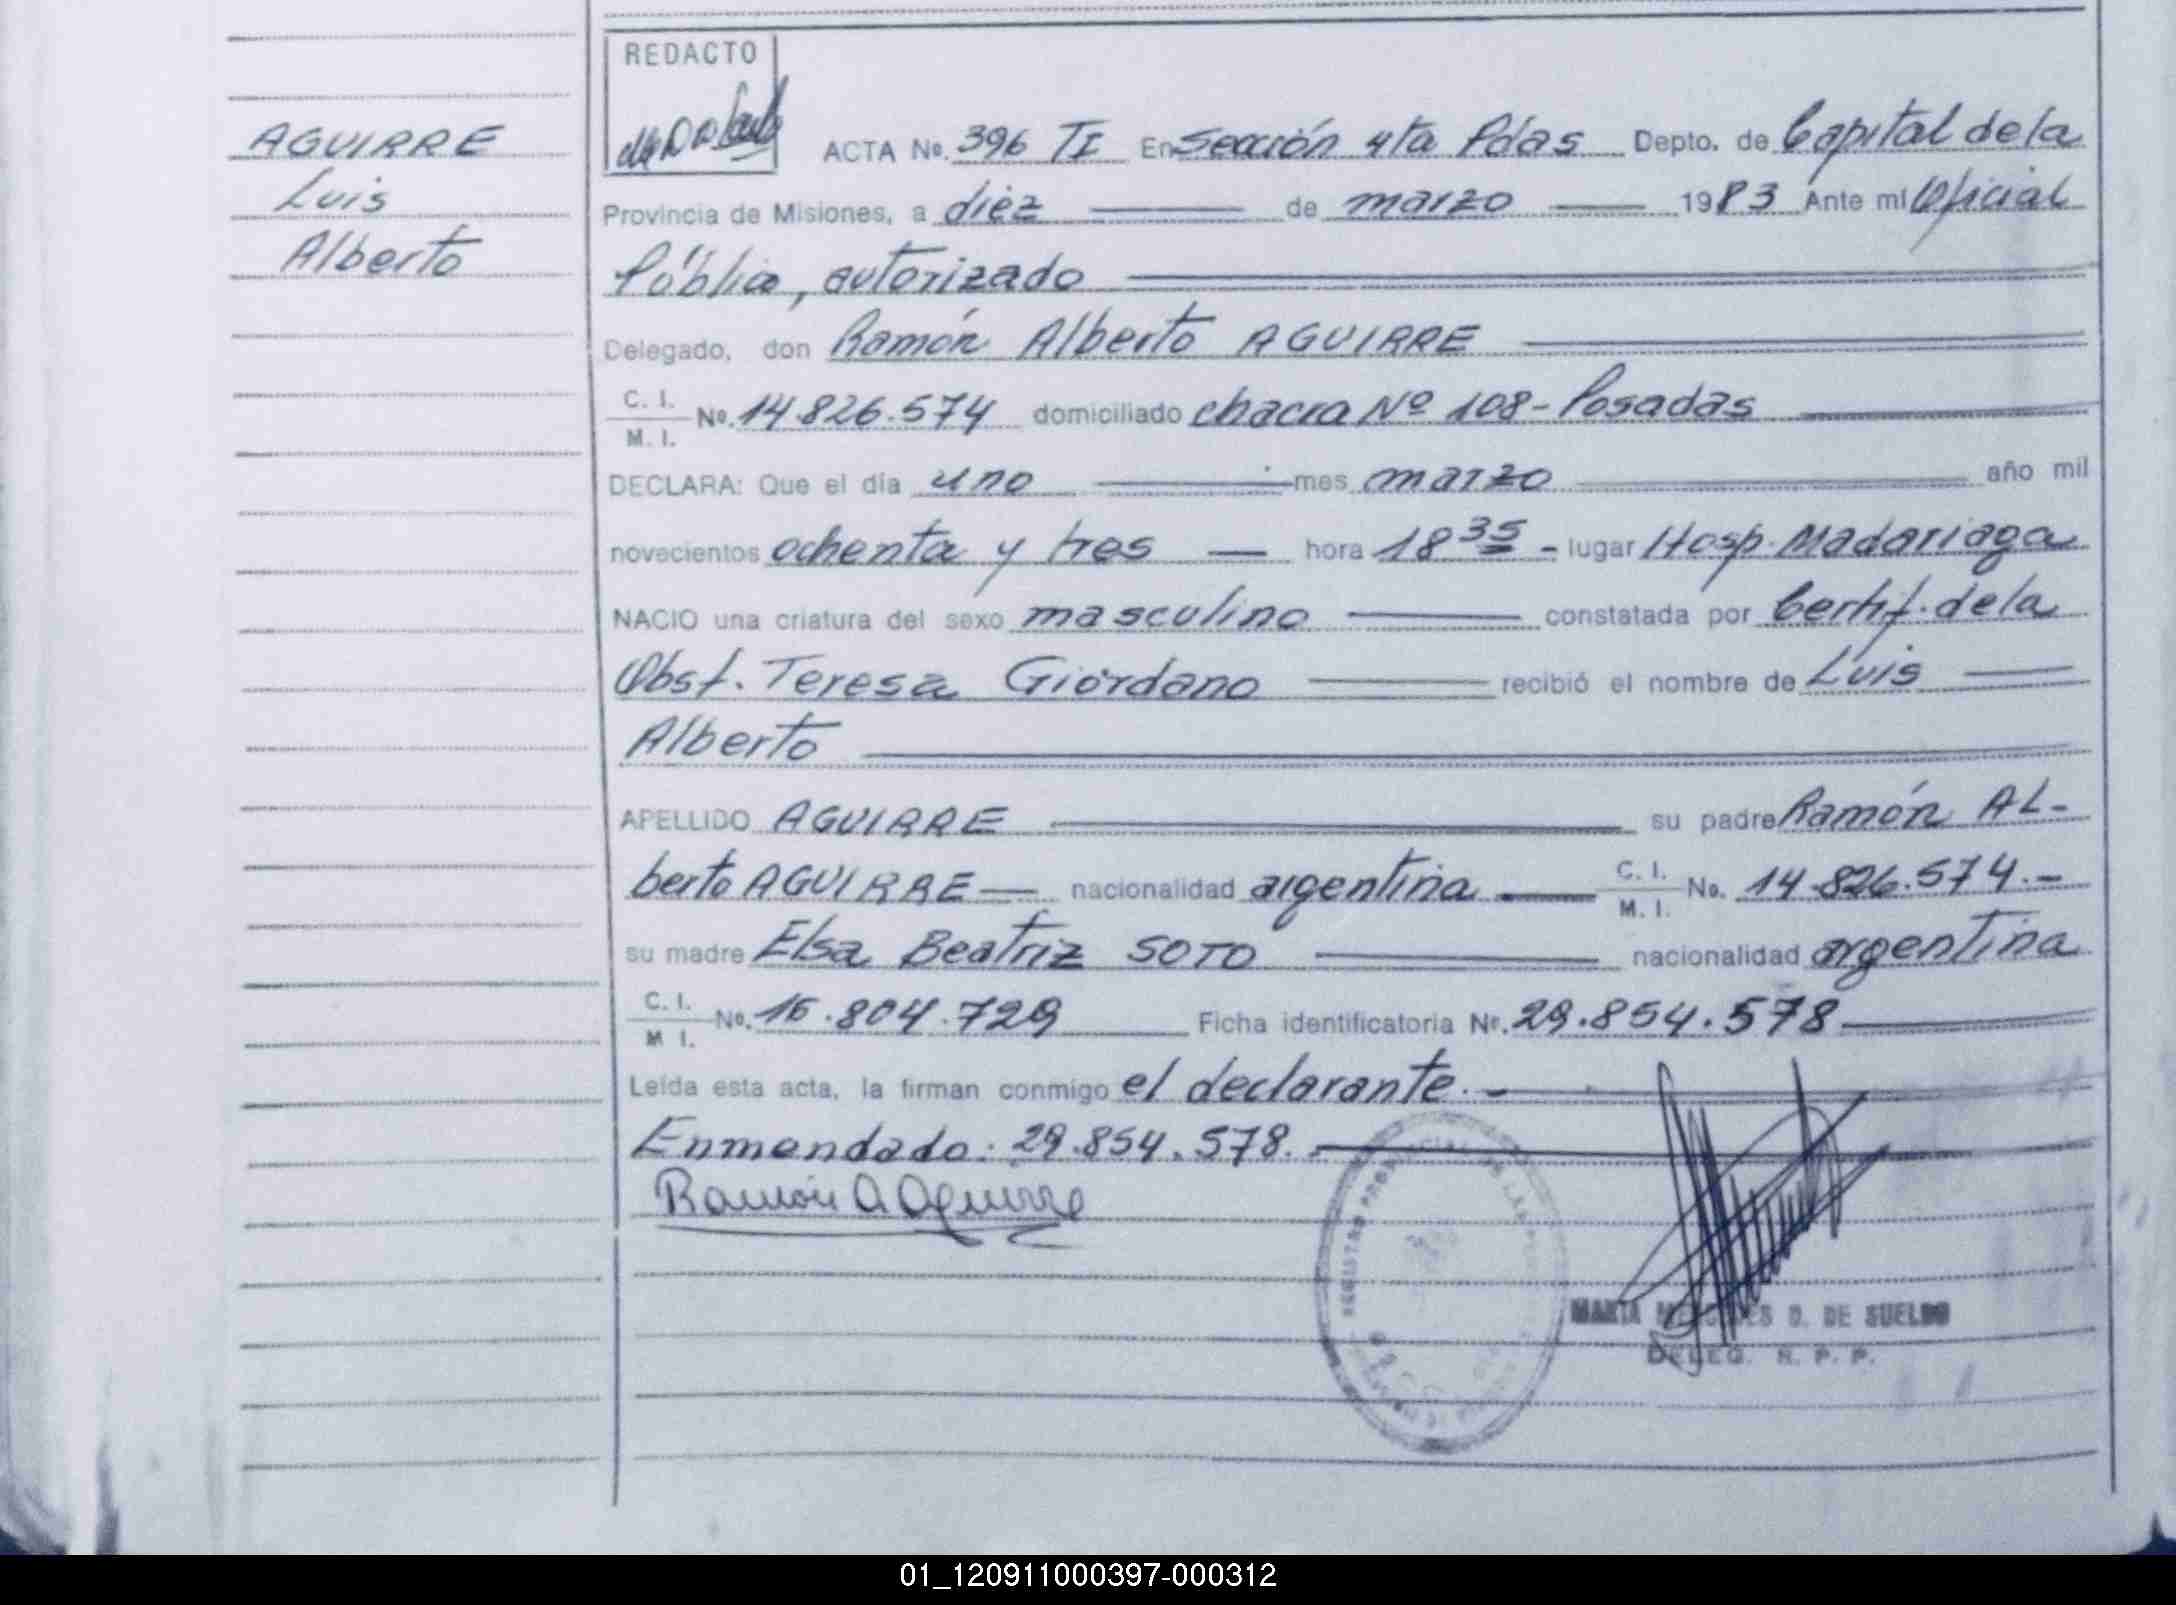 REDACTO
AGUIRRE
Luis
Alberto
ACTA No. 396 TI En Sección 4ta Pdas Depto. de Capital de la
Provincia de Misiones, a diez de marzo 1983 Ante mí Oficial
Público, autorizado
Delegado, don Ramón Alberto AGUIRRE
C. I.
M. I. No. 14.826.574 domiciliado chacra Nº 108 - Posadas
DECLARA: Que el día uno mes marzo año mil
novecientos ochenta y tres hora 18 35 - lugar Hosp. Madariaga
NACIO una criatura del sexo masculino constatada por Certif. de la
Obst. Teresa Giordano recibió el nombre de Luis
Alberto
APELLIDO AGUIRRE su padre Ramón AL-
berto AGUIRRE nacionalidad argentina C. I. M. I. No. 14.826.574.-
su madre Elsa Beatriz SOTO nacionalidad argentina
C. I.
M I. No. 16.804.729 Ficha identificatoria Nr. 29.854.578
Leída esta acta, la firman conmigo el declarante.-
Enmendado: 29.854.578.
Ramón A Aguirre
D. DE SUELDO
DELEG. R. P. P.
01_120911000397-000312